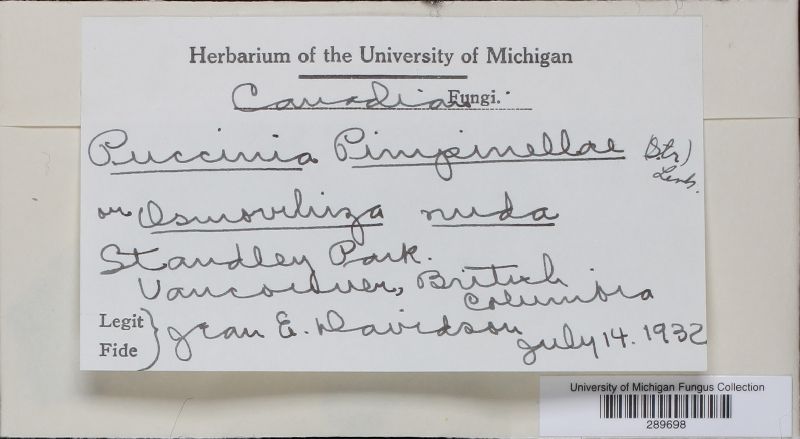 Herbarium of the University of Michigan
Canadian Fungi.
Puccinia Pimpinellae (Str)
Link.
on Osmorhiza nuda
Standley Park.
Vancouver, British
Columbia
Legit
Fide
Jean E. Davidson
July 14. 1932
University of Michigan Fungus Collection
289698